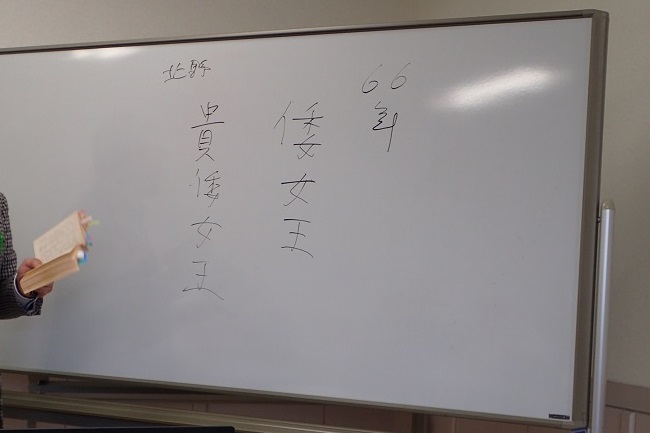 66年
倭女王
北野
貴倭女王